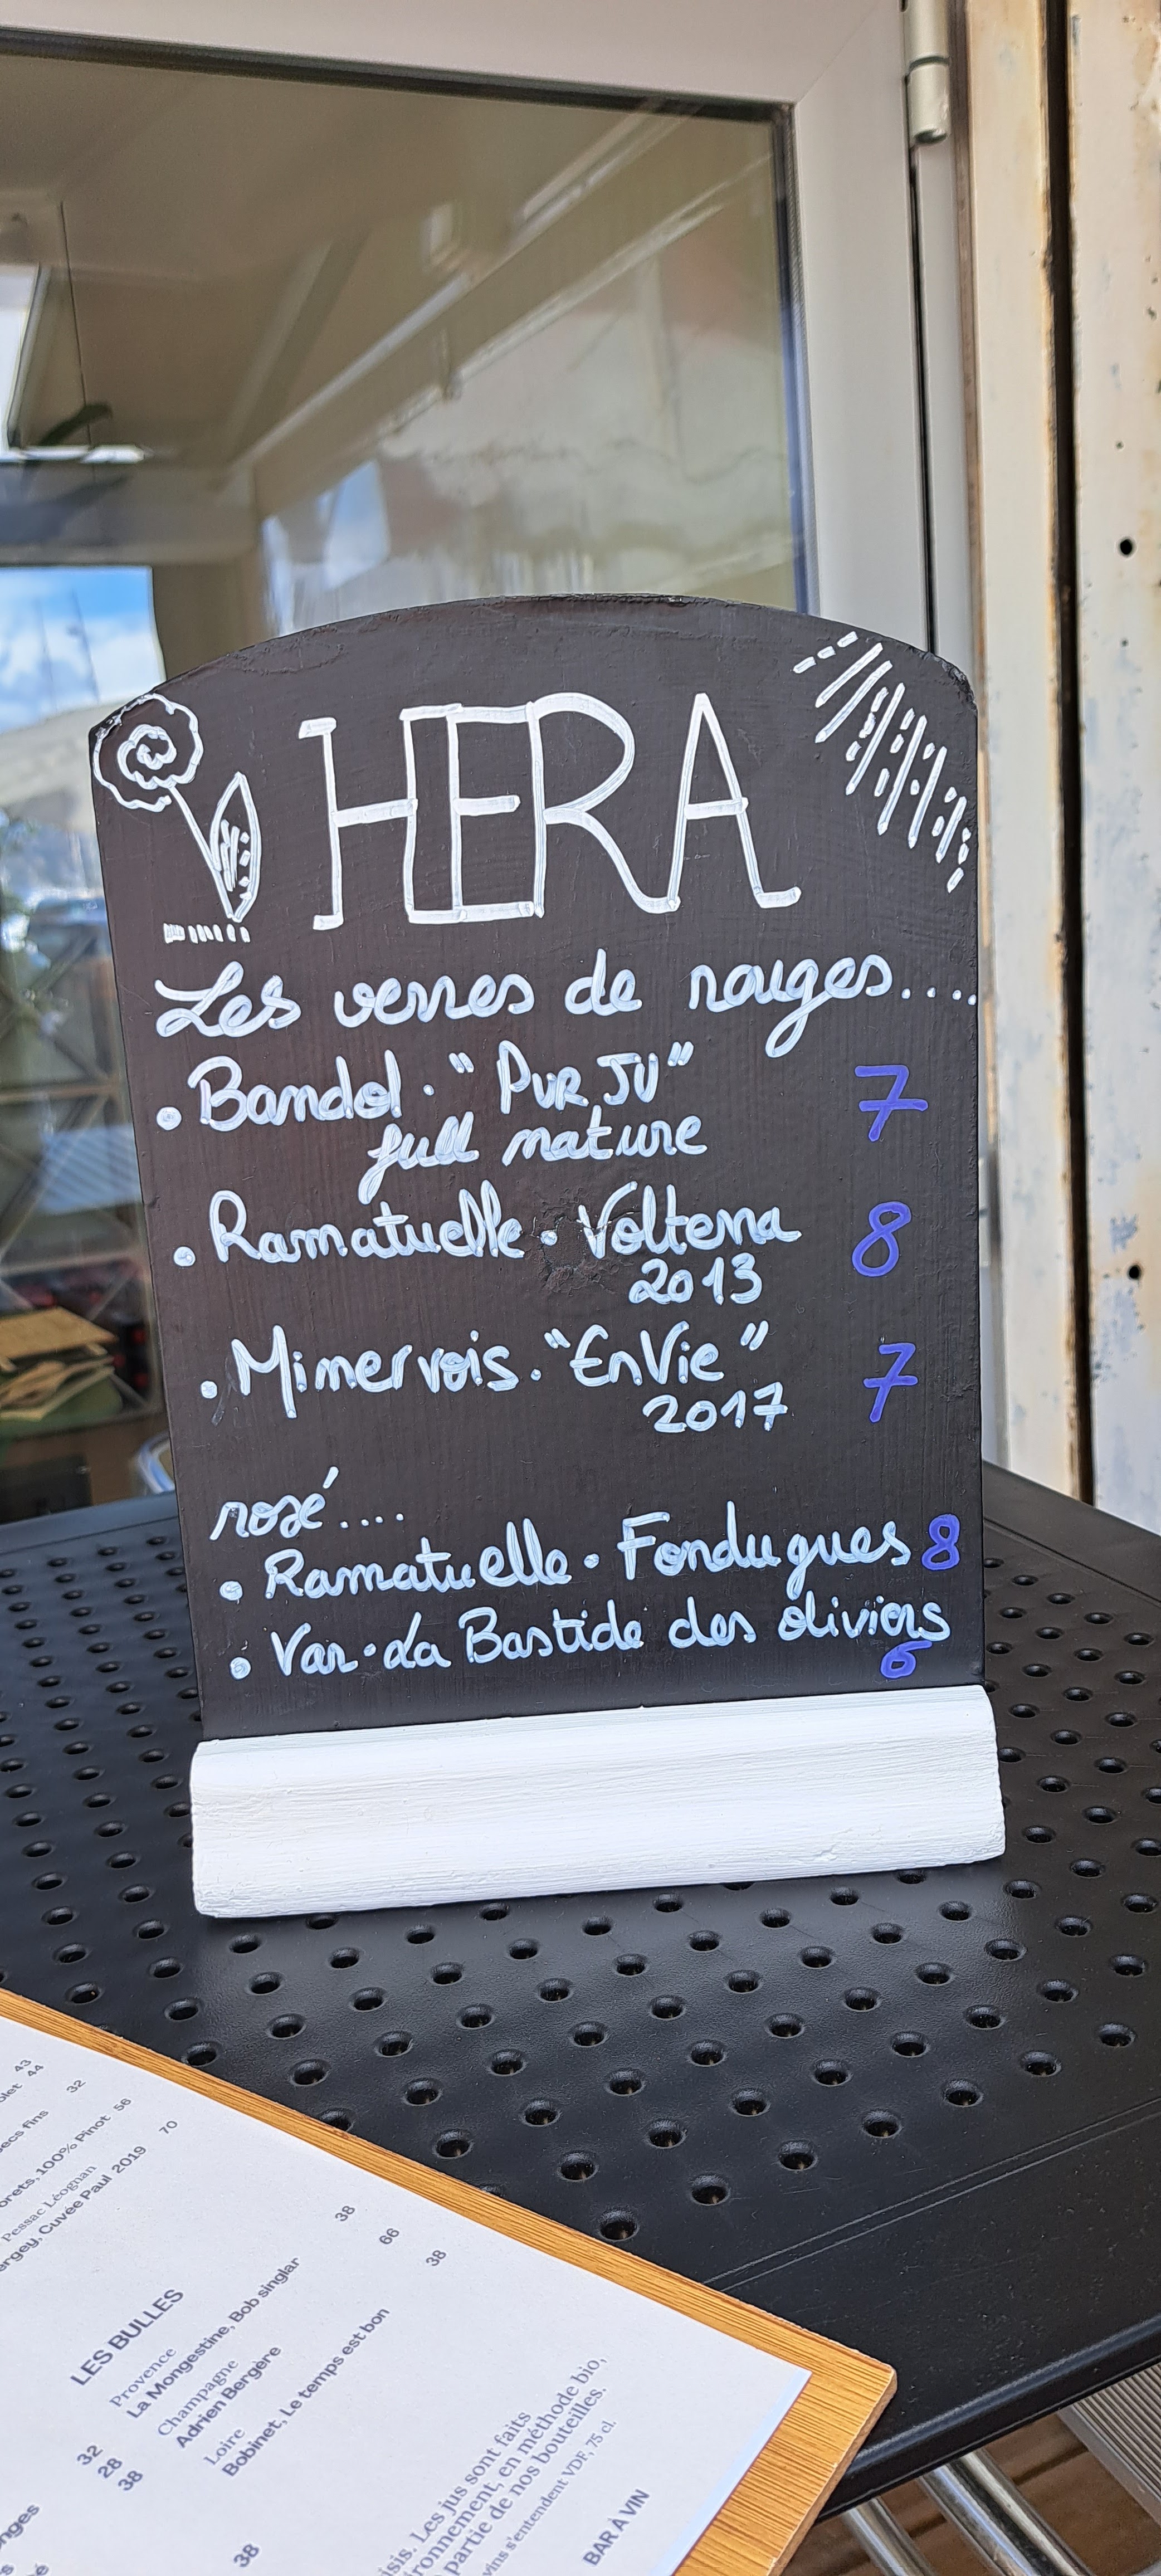 HERA
Les verres de rouges....
• Bandol • "PUR JU" 7
full nature
• Ramatuelle • Volterra 8
2013
• Minervois • "EnVie" 7
2017
rosé....
• Ramatuelle • Fondugues 8
• Var • La Bastide des oliviers
6
43
44
32
secs fins
100% Pinot 56
Pessac Léognan
Cuvée Paul 2019 70
LES BULLES
Provence
La Mongestine, Bob singlar 38
Champagne
Adrien Bergère 66
Loire
Bobinet, Le temps est bon 38
32
28
38
38
Les jus sont faits
en méthode bio,
partie de nos bouteilles.
vins s'entendent VDF, 75 cl.
BAR À VIN